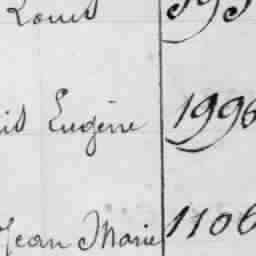 Louis
Eugène 1996
Jean Marie 1106